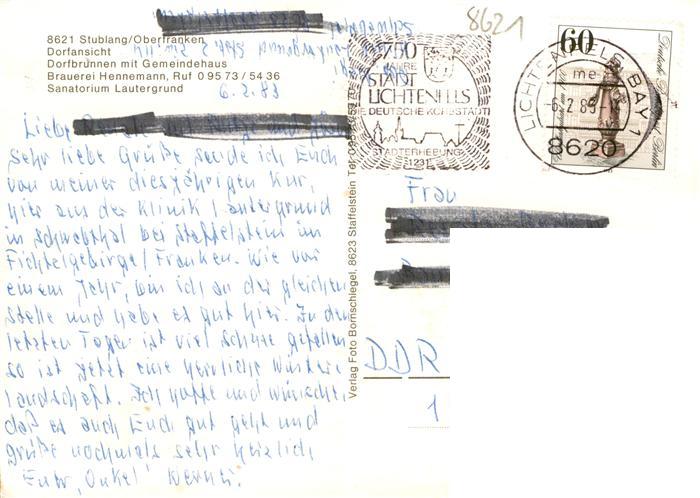 8621 Stublang/Oberfranken
Dorfansicht
Dorfbrunnen mit Gemeindehaus
Brauerei Hennemann, Ruf 0 95 73 / 54 36
Sanatorium Lautergrund
6.2.83
8621
750
JAHRE
STADT
LICHTENFELS
DIE DEUTSCHE KORBSTADT
STADTERHEBUNG
1231
60
Deutsche Bundespost Berlin
LICHTENFELS, BAY 1
me
-6.2.83
8620
Liebe
Sehr liebe Grüße sende ich Euch
von meiner diesjährigen Kur,
hier aus der Klinik Lautergrund
in Schwabthal bei Staffelstein im
Fichtelgebirge/Franken. Wie vor
einem Jahr, bin ich an der gleichen
Stelle und habe es gut hier. In den
letzten Tagen ist viel Schnee gefallen
so ist jetzt eine herrliche Winter-
landschaft. Ich hoffe und wünsche,
daß es auch Euch gut geht und
grüße nochmals sehr herzlich
Euer "Onkel" Werner.
Verlag Foto Bornschlegel, 8623 Staffelstein Tel.
Frau
DDR
1